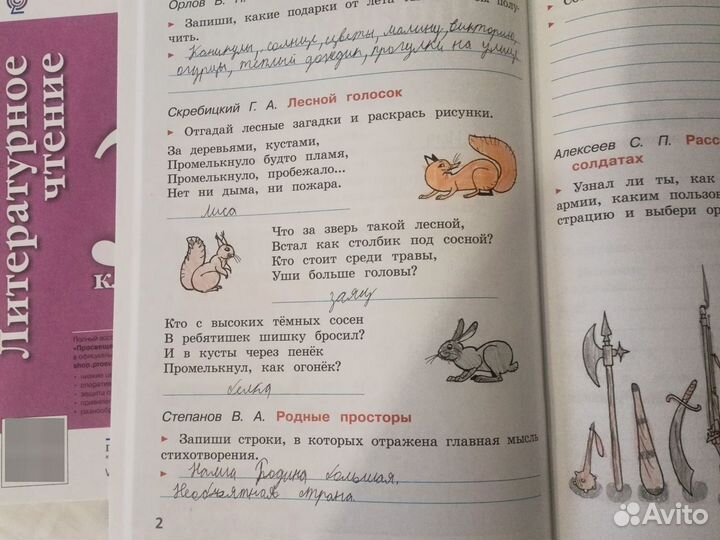 Орлов В. Н.
Запиши, какие подарки от лета
чить.
Каникулы, солнце, цветы, малину, викторию,
огурцы, тёплый дождик, прогулки на улице
Скребицкий Г. А. Лесной голосок
Отгадай лесные загадки и раскрась рисунки.
За деревьями, кустами,
Промелькнуло будто пламя,
Промелькнуло, пробежало...
Нет ни дыма, ни пожара.
лиса
Что за зверь такой лесной,
Встал как столбик под сосной?
Кто стоит среди травы,
Уши больше головы?
заяц
Кто с высоких тёмных сосен
В ребятишек шишку бросил?
И в кусты через пенёк
Промелькнул, как огонёк?
белка
Степанов В. А. Родные просторы
Запиши строки, в которых отражена главная мысль
стихотворения.
Наша Родина большая,
Необъятная страна.
2
Алексеев С. П. Расс
солдатах
Узнал ли ты, как
армии, каким пользов
страцию и выбери ор
Литературное
чтение
кл
Avito